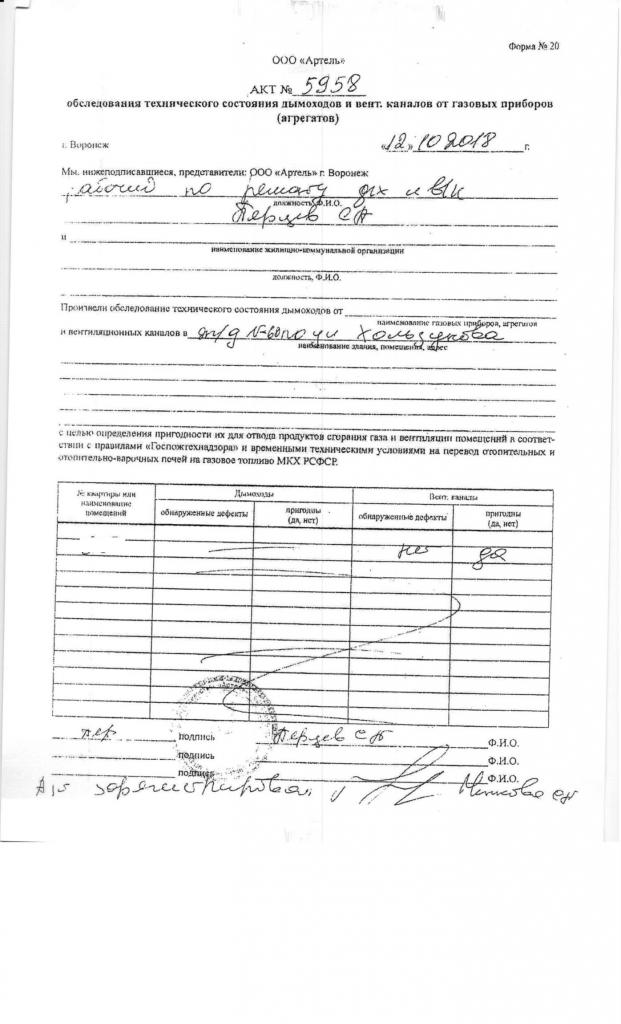 Форма № 20
ООО «Артель»
АКТ № 5958
обследования технического состояния дымоходов и вент. каналов от газовых приборов
(агрегатов)
г. Воронеж «12» 10 2018 г.
Мы, нижеподписавшиеся, представители: ООО «Артель» г. Воронеж
рабочий по ремонту дх и вк
должность, Ф.И.О.
Перцев С
и
наименование жилищно-коммунальной организации
должность, Ф.И.О.
Произвели обследование технического состояния дымоходов от
наименование газовых приборов, агрегатов
и вентиляционных каналов в ж/д №60 по ул Хользунова
наименование здания, помещения, адрес
с целью определения пригодности их для отвода продуктов сгорания газа и вентиляции помещений в соответ-
ствии с правилами «Госпожтехнадзора» и временными техническими условиями на перевод отопительных и
отопительно-варочных печей на газовое топливо МКХ РСФСР.
№ квартиры или наименование помещений
Дымоходы
Вент. каналы
обнаруженные дефекты
пригодны (да, нет)
обнаруженные дефекты
пригодны (да, нет)
нет да
подпись Перцев С Ф.И.О.
подпись Ф.И.О.
подпись Ф.И.О.
зарегистрировал